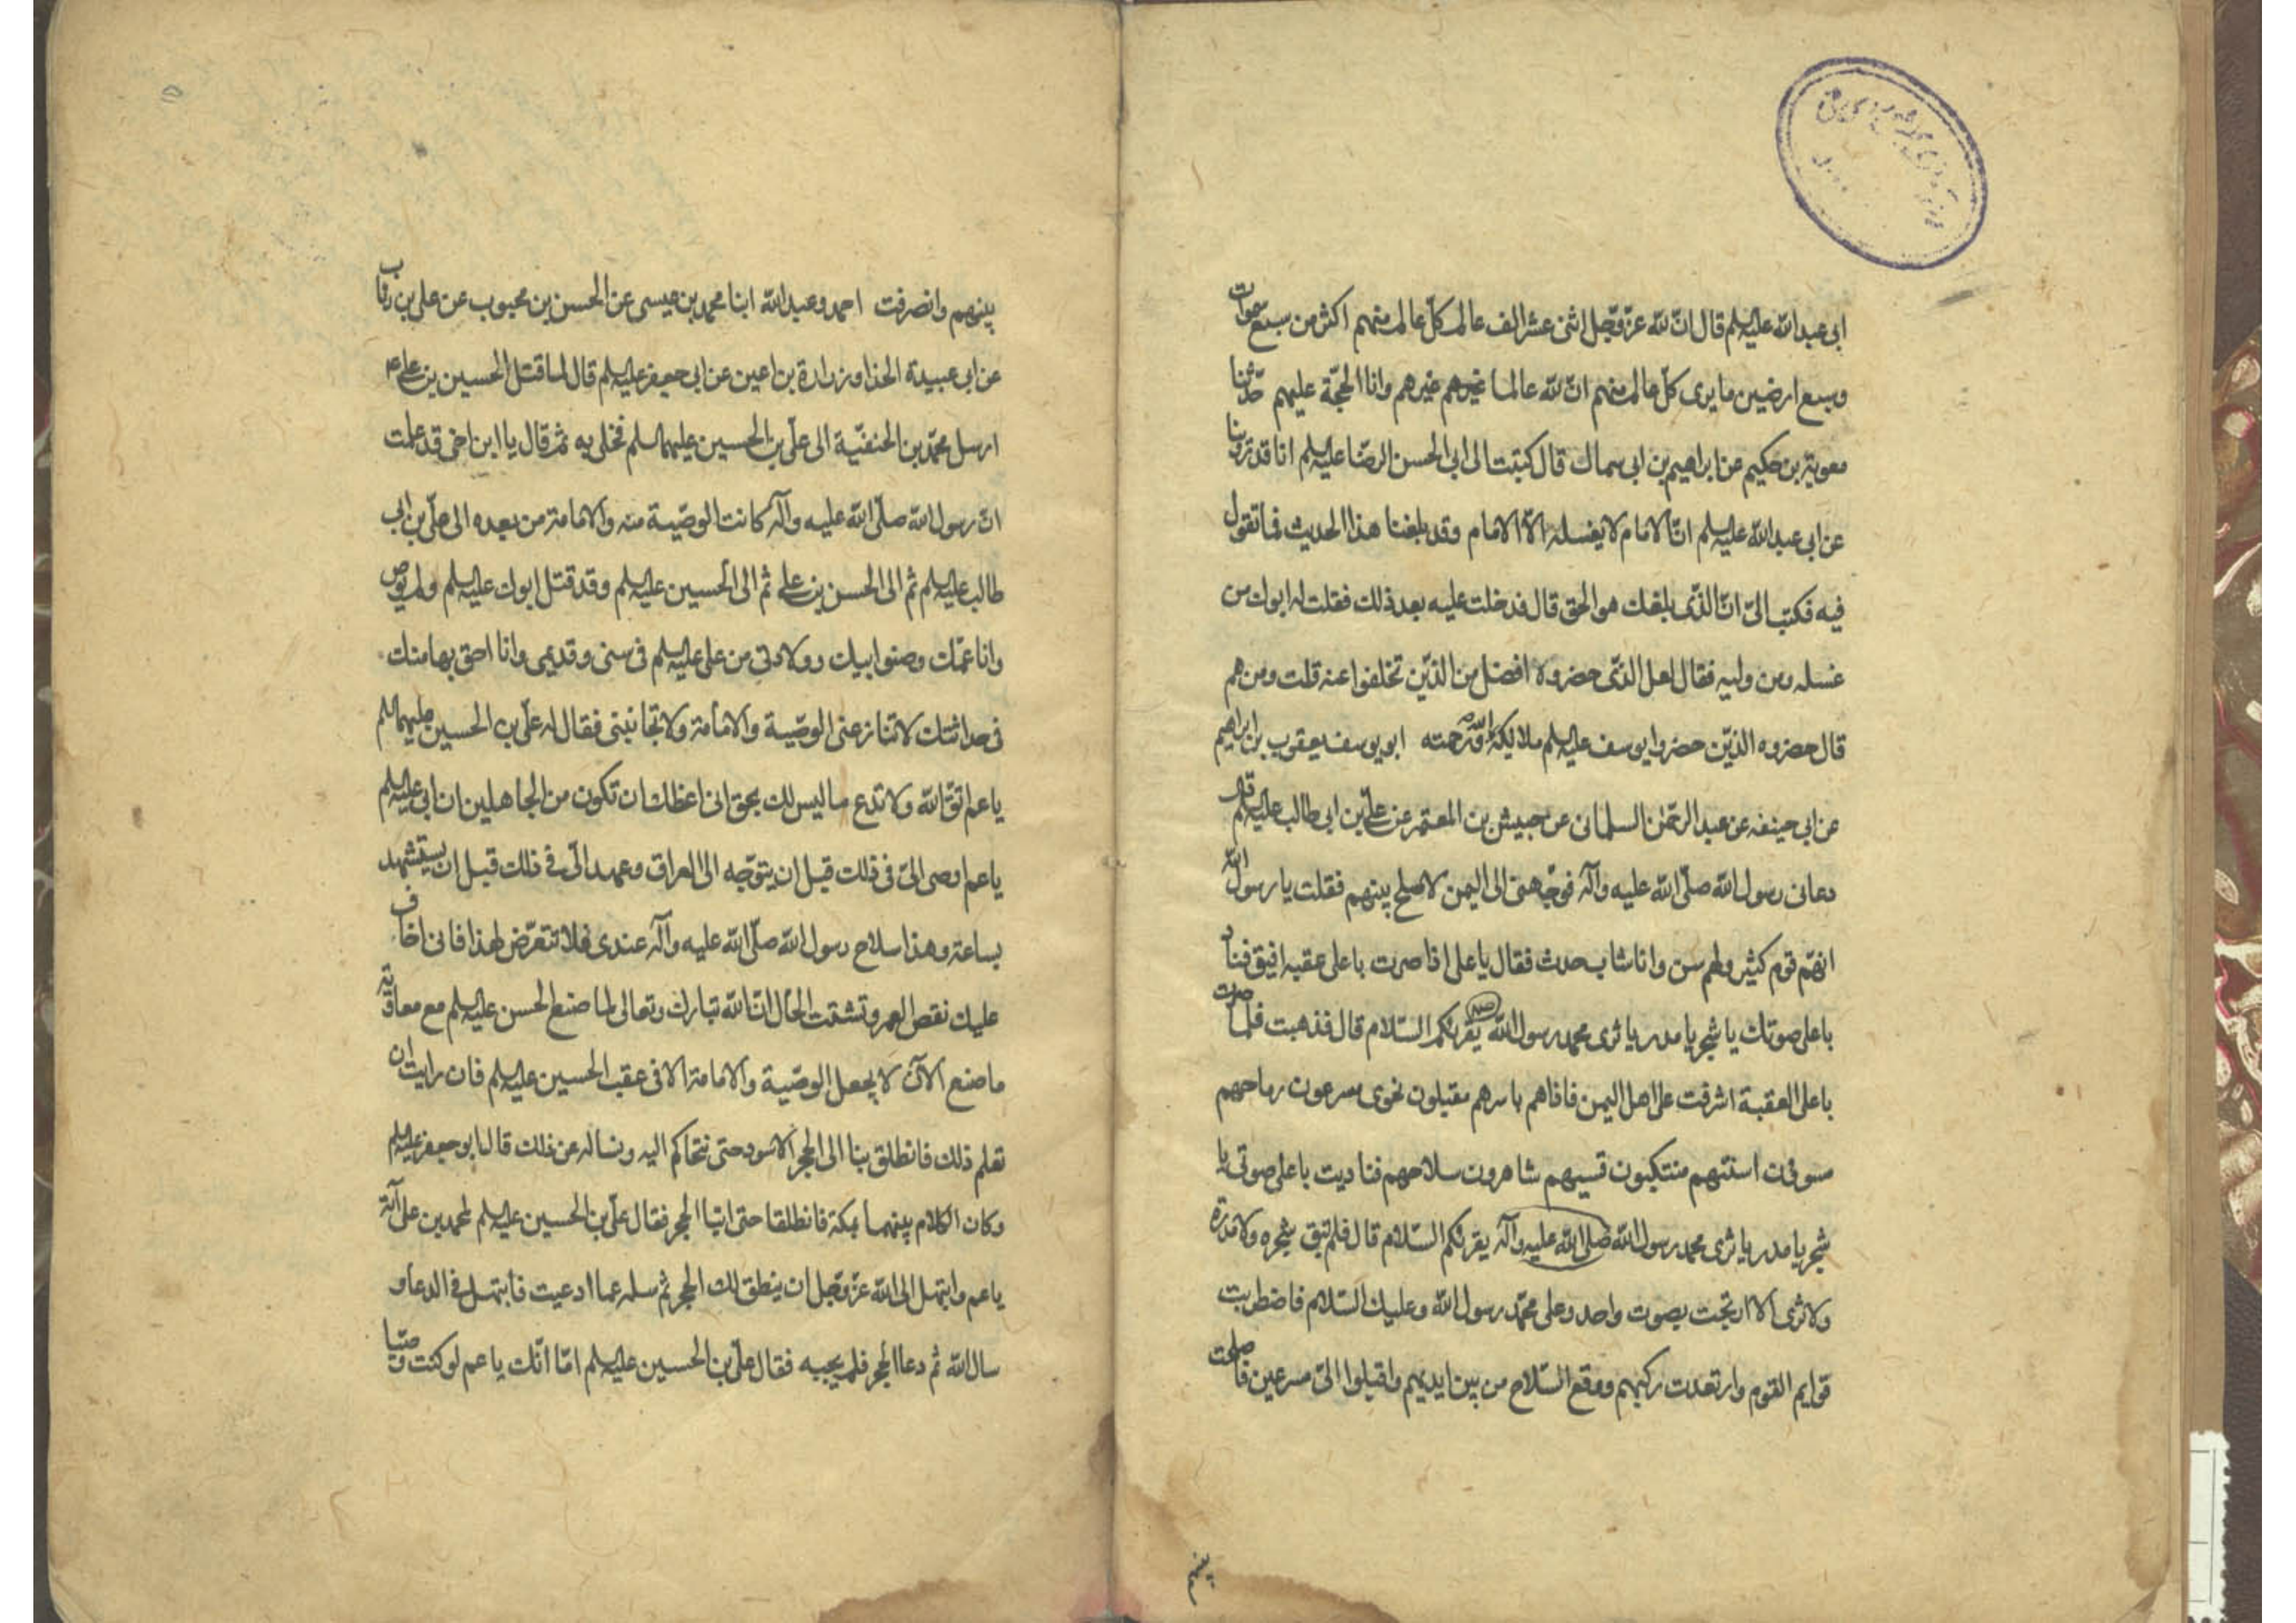 ابى عبد الله عليه السلم قال ان لله عز وجل اثنى عشر الف عالم كل عالم منهم اكثر من سبع سموات
وسبع ارضين ما يرى كل عالم منهم ان لله عالما غيرهم غيرهم وانا الحجة عليهم حدثنا
معوية بن حكيم عن ابراهيم بن ابى سماك قال كتبت الى ابى الحسن الرضا عليه السلم انا قد روينا
عن ابى عبد الله عليه السلم ان الامام لا يغسله الا الامام وقد بلغنا هذا الحديث فما تقول
فيه فكتب الى ان الذى بلغك هو الحق قال فدخلت عليه بعد ذلك فقلت له ابوك من
غسله ومن وليه فقال لعل الذى حضروه افضل من الذين تخلفوا عنه قلت ومن هم
قال حضروه الذين حضروا يوسف عليه السلم ملائكة الله ورحمته ابو يوسف يعقوب بن ابراهيم
عن ابى حنيفه عن عبد الرحمن السلمانى عن حبيش بن المعتمر عن على بن ابى طالب عليه السلم قال
دعانى رسول الله صلى الله عليه وآله فوجهنى الى اليمن لاصلح بينهم فقلت يا رسول الله
انهم قوم كثير ولهم سن وانا شاب حدث فقال يا على اذا صرت باعلى عقبه افيق فناد
باعلى صوتك يا شجر يا مدر يا ثرى محمد رسول الله يقرئكم السلام قال فذهبت فلما صرت
باعلى العقبة اشرفت على اهل اليمن فاذاهم باسرهم مقبلون نحوى مسرعون رماحهم
مسوفن اسنتهم متنكبون قسيهم شاهرون سلاحهم فناديت باعلى صوتى يا
شجر يا مدر يا ثرى محمد رسول الله صلى الله عليه وآله يقرئكم السلام قال فلم تبق شجره ولا مدرة
ولا ثرى الا ارتجت بصوت واحد وعلى محمد رسول الله وعليك السلام فاضطربت
قوايم القوم وارتعدت ركبهم ووقع السلاح من بين ايديهم واقبلوا الى مسرعين فاصلحت
بينهم وانصرفت احمد وعبد الله ابنا محمد بن عيسى عن الحسن بن محبوب عن على بن رئاب
عن ابى عبيدة الحذا وزرارة بن اعين عن ابى جعفر عليه السلم قال لما قتل الحسين بن على ع
ارسل محمد بن الحنفية الى على بن الحسين عليهما السلم فخلى به ثم قال يا ابن اخى قد علمت
ان رسول الله صلى الله عليه وآله كانت الوصية منه والامامة من بعده الى على بن ابى
طالب عليه السلم ثم الى الحسن بن على ثم الى الحسين عليه السلم وقد قتل ابوك عليه السلم ولم يوص
وانا عمك وصنو ابيك وولادتى من على عليه السلم فى سنى وقديمى وانا احق بها منك
فى حداثتك لا تنازعنى الوصية والامامة ولا تجانبنى فقال له على بن الحسين عليهما السلم
يا عم اتق الله ولا تدع ما ليس لك بحق انى اعظك ان تكون من الجاهلين ان ابى عليه السلم
يا عم اوصى الى فى ذلك قبل ان يتوجه الى العراق وعهد الى فى ذلك قبل ان يستشهد
بساعة وهذا سلاح رسول الله صلى الله عليه وآله عندى فلا تتعرض لهذا فانى اخاف
عليك نقص العمر وتشتت الحال ان الله تبارك وتعالى لما صنع الحسن عليه السلم مع معاوية
ما صنع الآن لا يجعل الوصية والامامة الا فى عقب الحسين عليه السلم فان رايت ان
تعلم ذلك فانطلق بنا الى الحجر الاسود حتى نتحاكم اليه ونساله عن ذلك قال ابو جعفر عليه السلم
وكان الكلام بينهما بمكة فانطلقا حتى اتيا الحجر فقال على بن الحسين عليه السلم لمحمد بن على
يا عم وابتهل الى الله عز وجل ان ينطق لك الحجر ثم سله عما ادعيت فابتهل فى الدعاء و
سال الله ثم دعا الحجر فلم يجيبه فقال على بن الحسين عليه السلم اما انك يا عم لو كنت وصيا